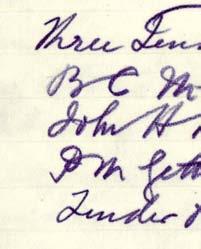 Three Ten
B C M
John H
D M Gett
Tender